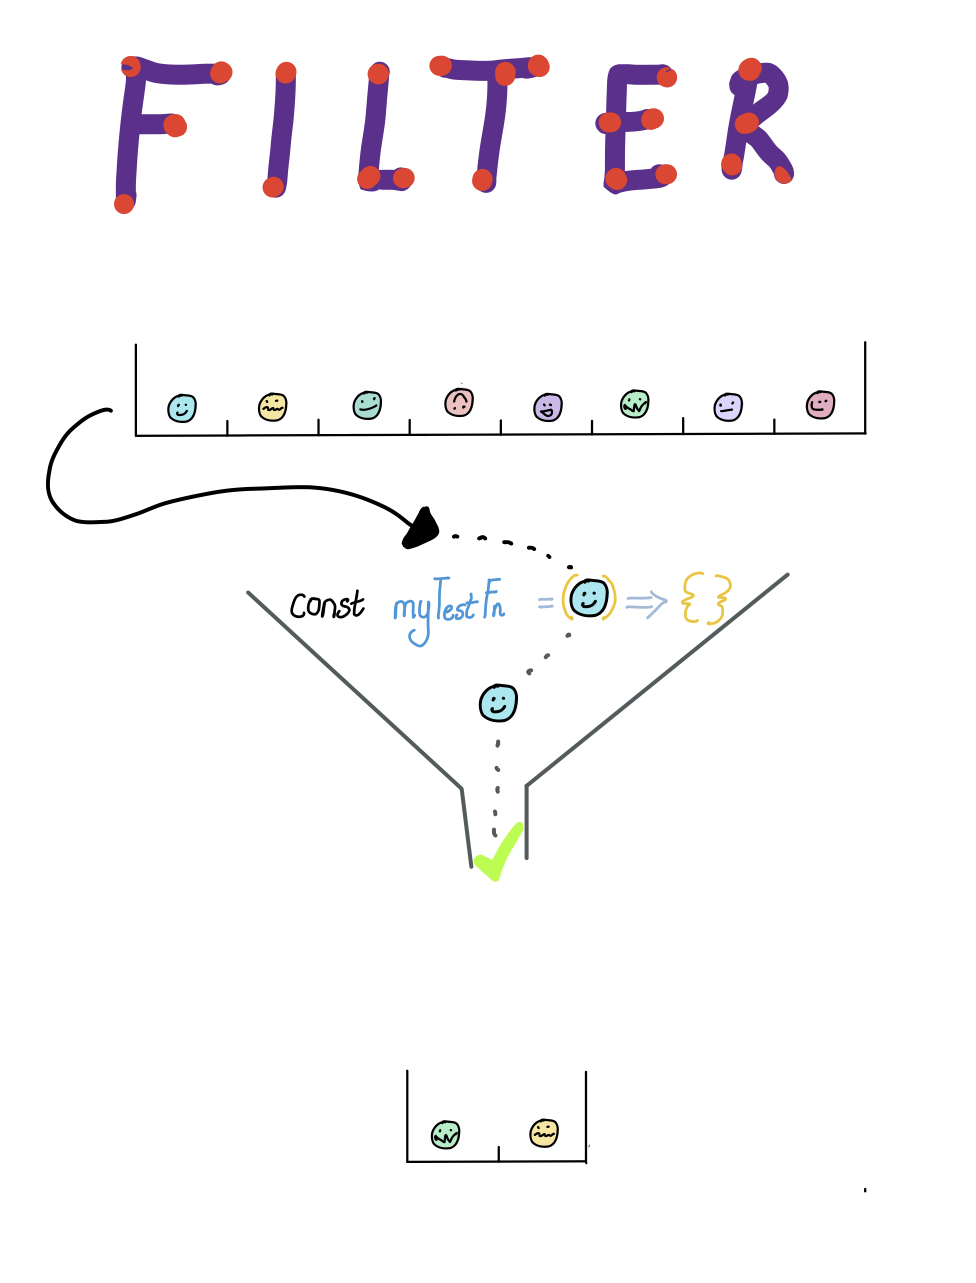 FILTER
const myTestFn = ( ) => { }